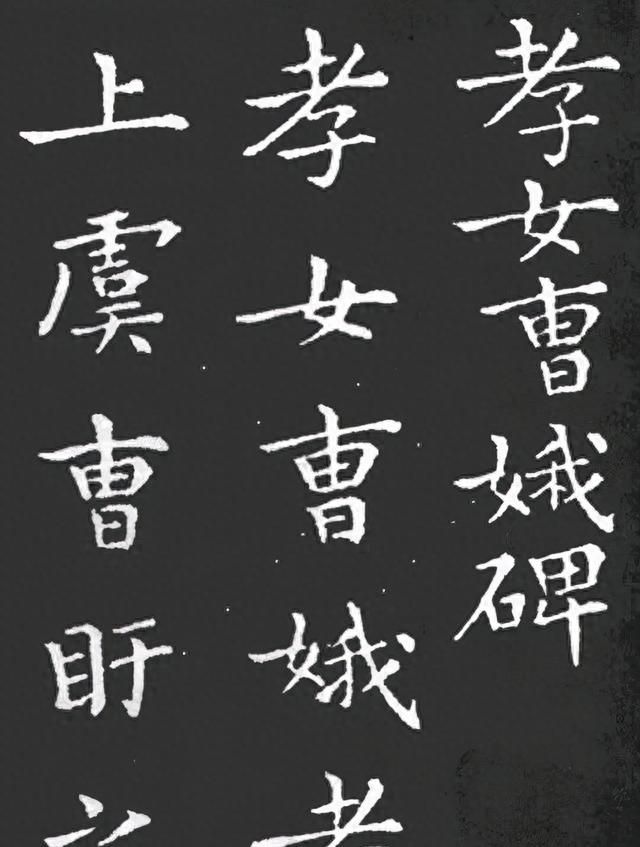 孝女曹娥碑
孝女曹娥者
上虞曹盱之